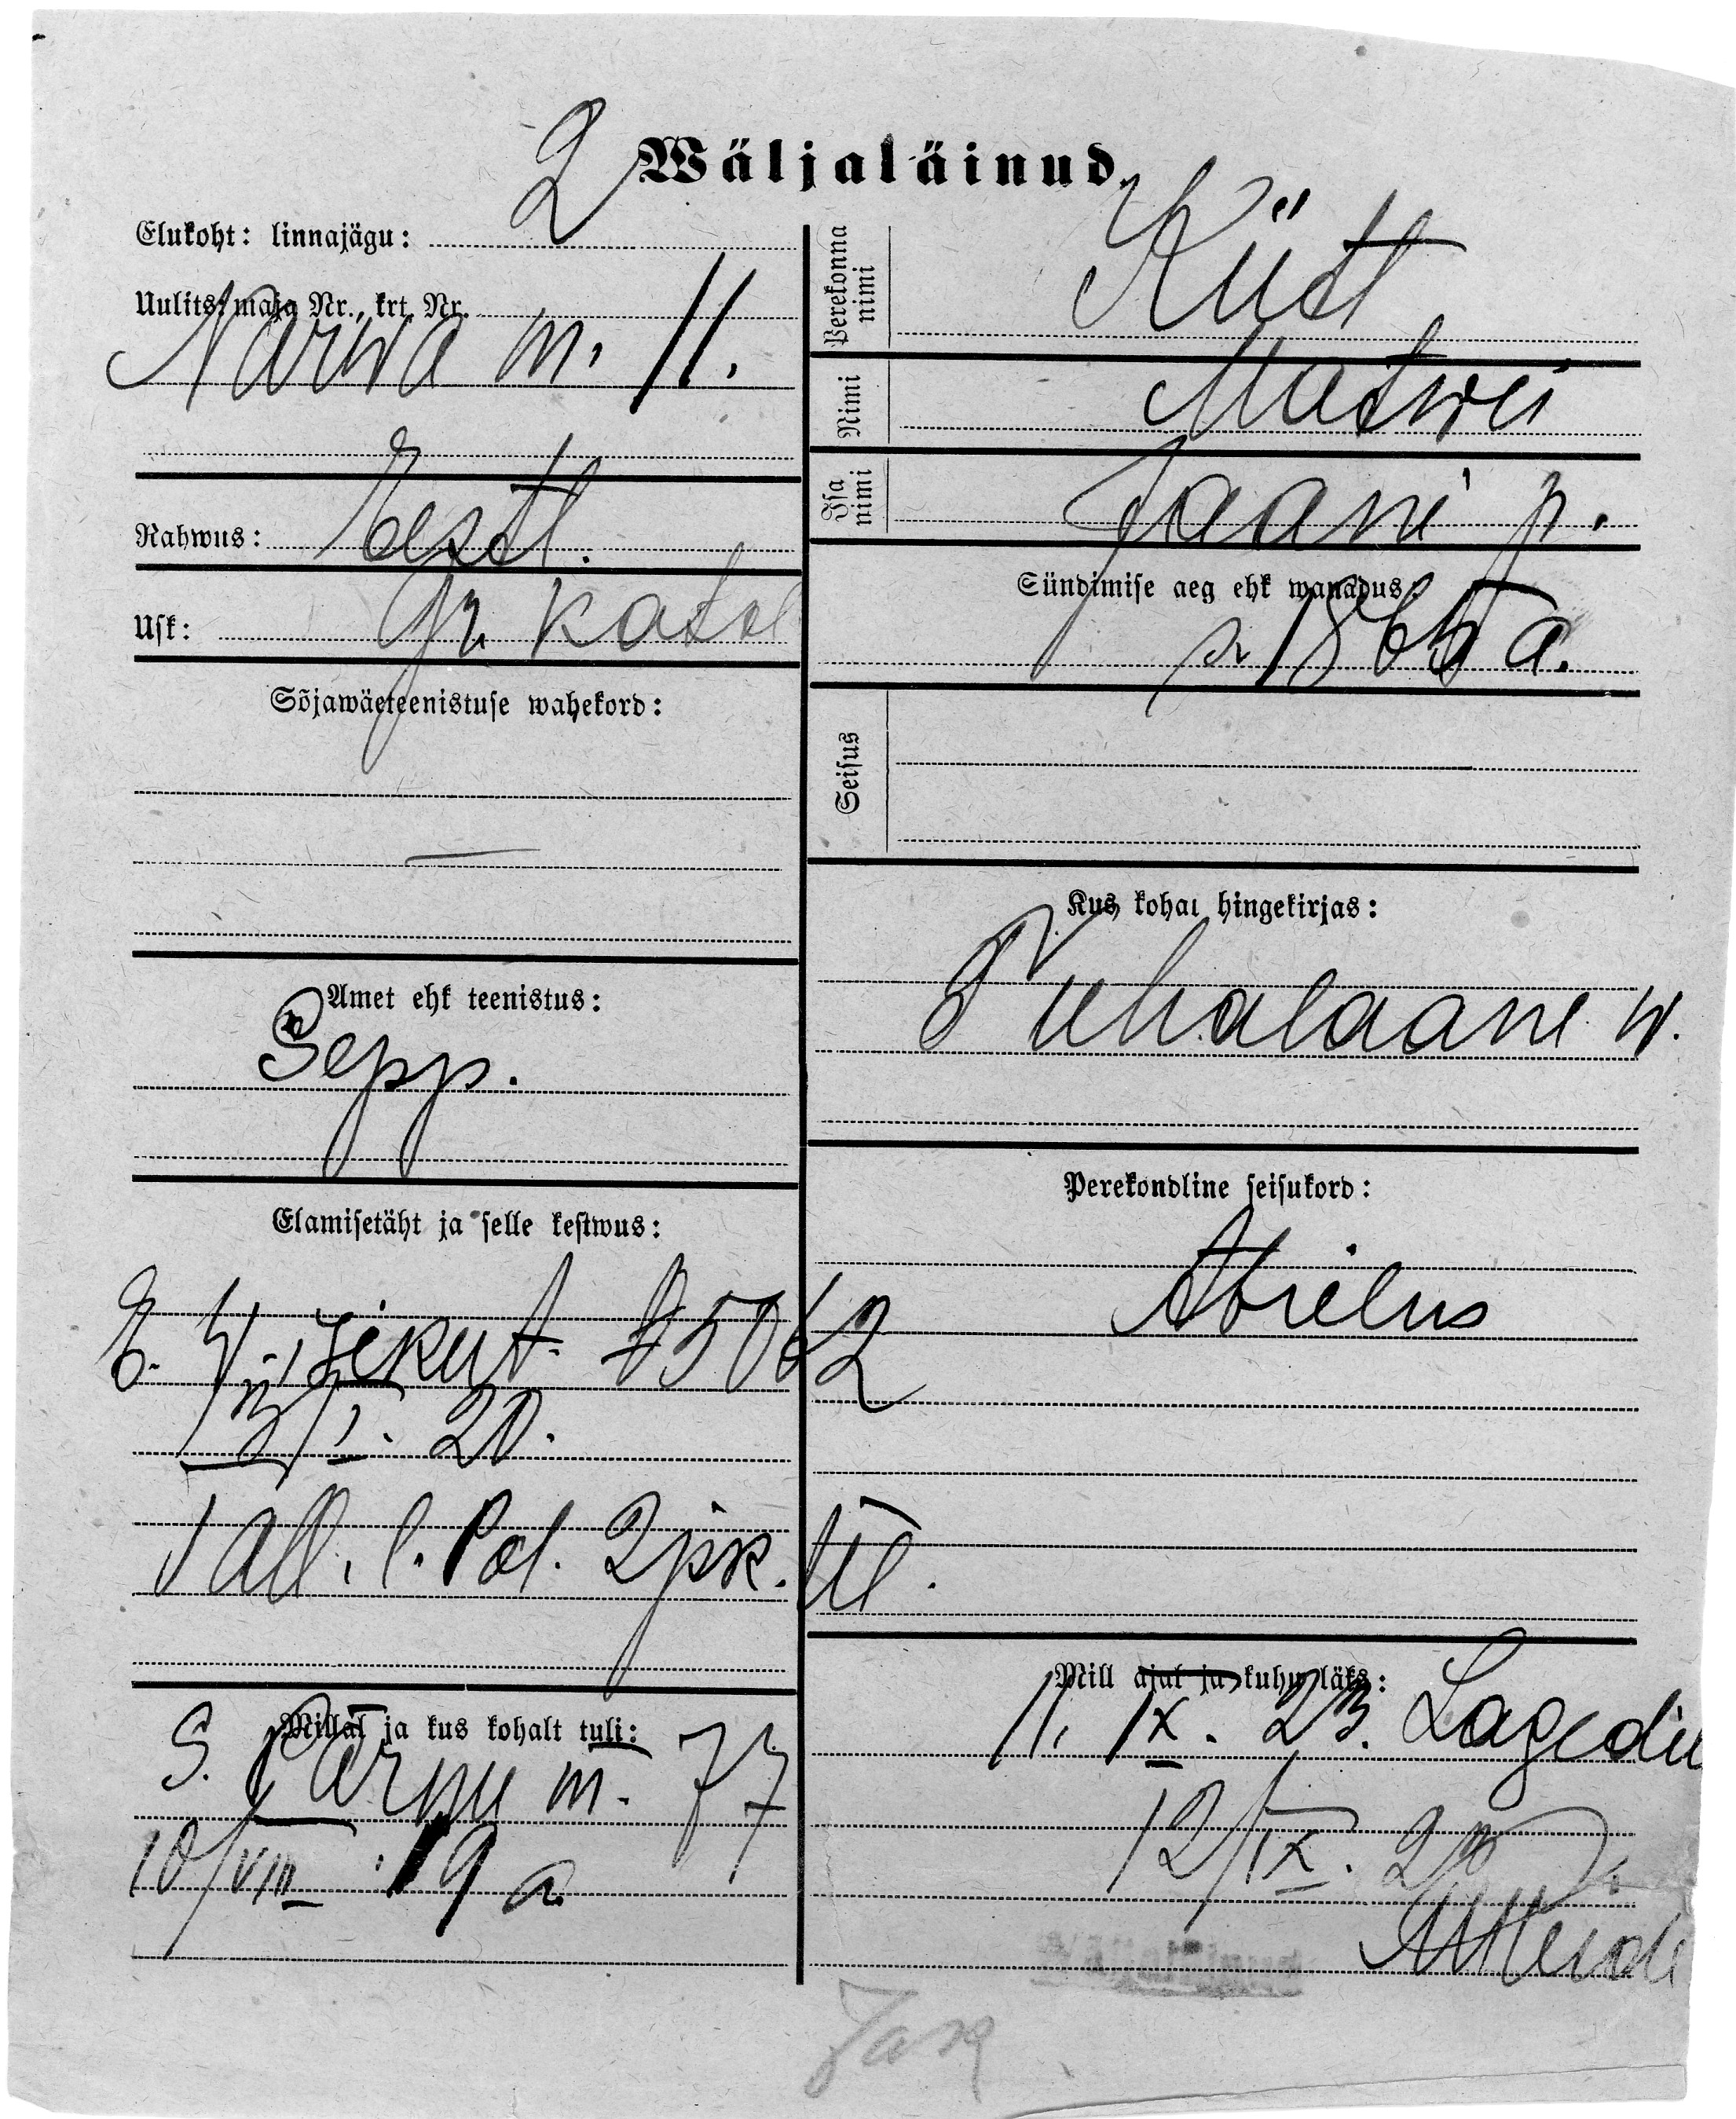 Wäljaläinud.
Elukoht: linnajägu: 2
Uulits, maja Nr., krt. Nr.
Narwa m. 11.
Rahwus: Eestl.
Usk: Gr. katol
Sõjawäeteenistuse wahekord:
—
Amet ehk teenistus:
Sepp.
Elamisetäht ja selle kestwus:
E. W. isikut. A 5062
13/I. 20.
Tall. l. Pol. 2 jsk. ül.
Millal ja kus kohalt tuli:
S. Pärnu m. 77
10/VIII 19 a
Perekonna nimi
Küst
Nimi
Matwei
Isa nimi
Jaani p.
Sündimise aeg ehk wanadus:
s. 1865 a.
Seisus
Kus kohal hingekirjas:
Tuhalaane w.
Perekondline seisukord:
Abielus
Mill ajal ja kuhu läks:
11. IX. 23. Lagedi
12/IX. 23